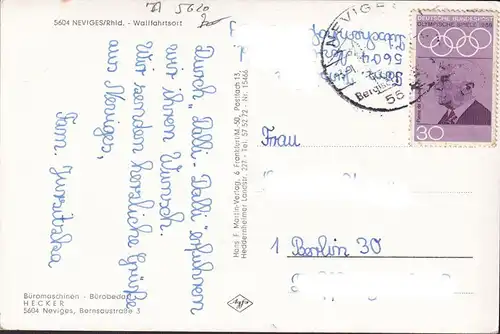 5620
5604 NEVIGES/Rhld. - Wallfahrtsort
Durch „Dalli-Dalli" erfuhren
wir ihren Wunsch.
Wir senden herzliche Grüße
aus Neviges,
Fam.
Büromaschinen - Bürobedarf
HECKER
5604 Neviges, Bernsaustraße 3
Hans F. Martin-Verlag, 6 Frankfurt/M. 50, Postfach 13,
Heddernheimer Landstr. 227 - Tel. 57 52 72 - Nr. 15466
agfa
5604
NEVIGES
DEUTSCHE BUNDESPOST
OLYMPISCHE SPIELE 1968
30
Frau
1 Berlin 30